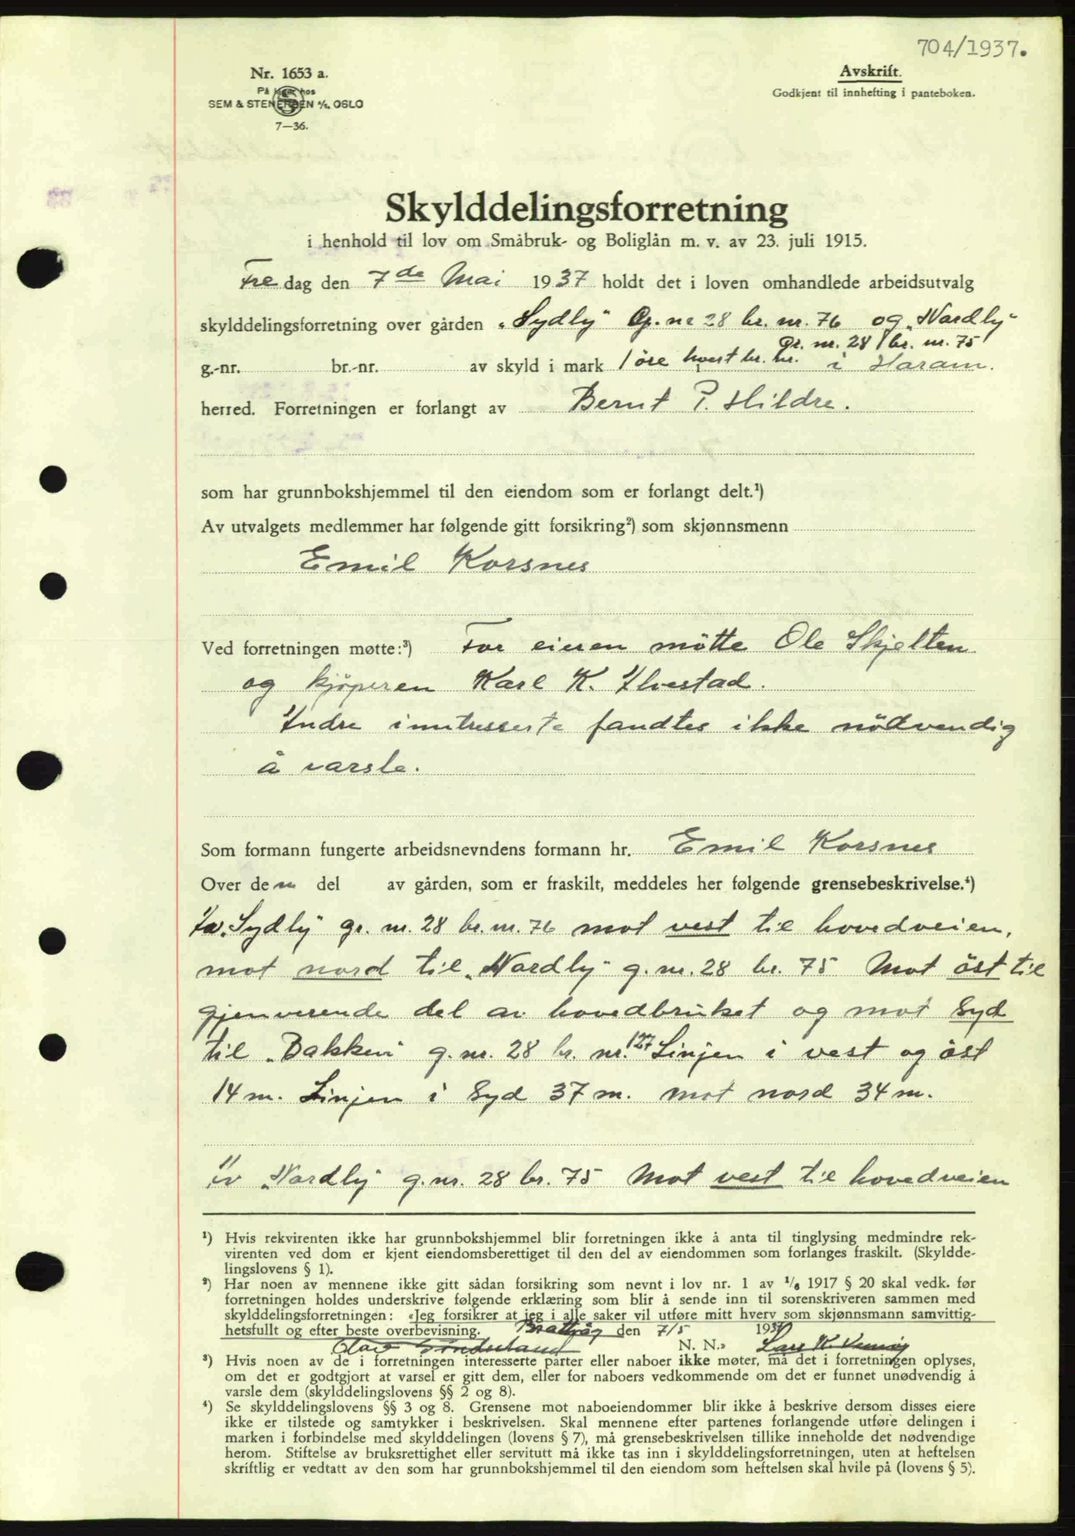 704/1937.
Nr. 1653 a.
På lager hos
SEM & STENERSEN A/S, OSLO
7—36.
Avskrift.
Godkjent til innhefting i panteboken.
Skylddelingsforretning
i henhold til lov om Småbruk- og Boliglån m. v. av 23. juli 1915.
Fredag den 7de Mai 1937 holdt det i loven omhandlede arbeidsutvalg
skylddelingsforretning over gården „Sydly" G. nr 28 br. nr. 76 og „Nordly"
Gr. nr. 28 br. nr. 75
g.-nr. br.-nr. av skyld i mark 1 öre hvert br. nr. i Haram.
herred. Forretningen er forlangt av Bernt P. Hildre.
som har grunnbokshjemmel til den eiendom som er forlangt delt.¹)
Av utvalgets medlemmer har følgende gitt forsikring²) som skjønnsmenn
Emil Korsnes
Ved forretningen møtte:³) For eieren mötte Ole Skjelten
og kjöperen Karl K. Ulvestad.
Andre inntresserte fandtes ikke nödvendig
å varsle.
Som formann fungerte arbeidsnevndens formann hr. Emil Korsnes
Over den del av gården, som er fraskilt, meddeles her følgende grensebeskrivelse.⁴)
Av „Sydly" gr. nr. 28 br. nr. 76 mot vest til hovedveien,
mot nord til „Nordly" g. nr. 28 br. 75 Mot öst til
gjenverende del av hovedbruket og mot Syd
til „Bakken" g. nr. 28 br. nr. 127 Linjen i vest og öst
14 m. Linjen i Syd 37 m. mot nord 34 m.
Av „Nordly" g. nr. 28 br. 75 Mot vest til hovedveien
¹) Hvis rekvirenten ikke har grunnbokshjemmel blir forretningen ikke å anta til tinglysing medmindre rek-
virenten ved dom er kjent eiendomsberettiget til den del av eiendommen som forlanges fraskilt. (Skyldde-
lingslovens § 1).
²) Har noen av mennene ikke gitt sådan forsikring som nevnt i lov nr. 1 av ¹/₆ 1917 § 20 skal vedk. før
forretningen holdes underskrive følgende erklæring som blir å sende inn til sorenskriveren sammen med
skylddelingsforretningen: «Jeg forsikrer at jeg i alle saker vil utføre mitt hverv som skjønnsmann samvittig-
hetsfullt og efter beste overbevisning. Brattvåg den 7/5 1937
Olav Sönderland N. N.» Lars K.
³) Hvis noen av de i forretningen interesserte parter eller naboer ikke møter, må det i forretningen oplyses,
om det er godtgjort at varsel er gitt dem, eller for naboers vedkommende om det er funnet unødvendig å
varsle dem (skylddelingslovens §§ 2 og 8).
⁴) Se skylddelingslovens §§ 3 og 8. Grensene mot naboeiendommer blir ikke å beskrive dersom disses eiere
ikke er tilstede og samtykker i beskrivelsen. Skal mennene efter partenes forlangende utføre delingen i
marken i forbindelse med skylddelingen (lovens § 7), må grensebeskrivelsen tillike inneholde det nødvendige
herom. Stiftelse av bruksrettighet eller servitutt må ikke tas inn i skylddelingsforretningen, uten at heftelsen
skriftlig er vedtatt av den som har grunnbokshjemmel til den eiendom som heftelsen skal hvile på (lovens § 5).